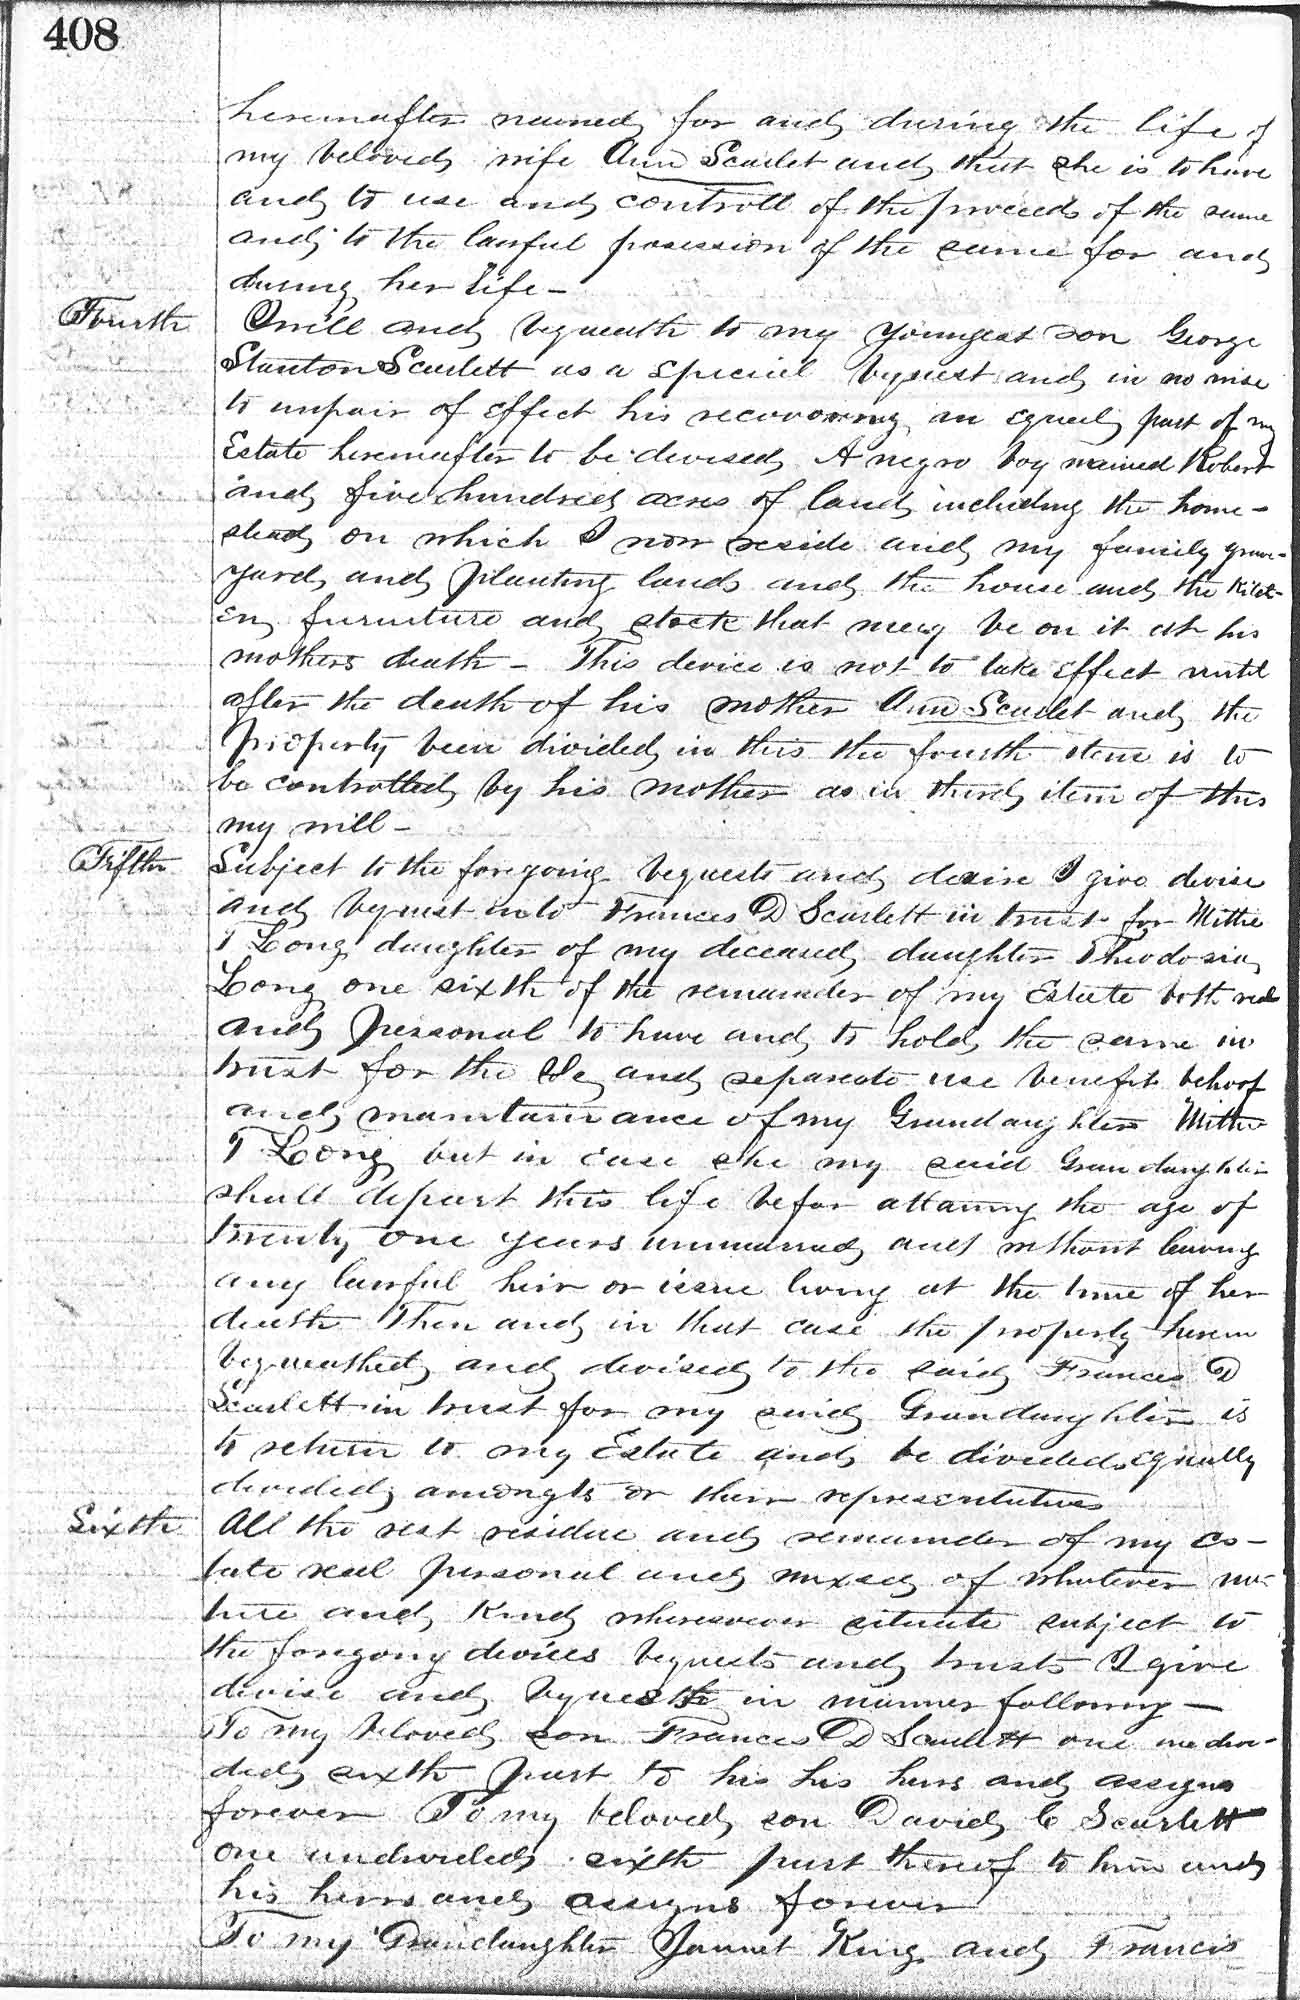 408
hereinafter named for and during the life of
my beloved wife Ann Scarlet and that she is to have
and to use and controll of the proceeds of the same
and to the lawful posession of the same for and
during her life -
Fourth I will and bequeath to my youngest son George
Stanton Scarlett as a special bequest and in no wise
to impair of effect his recovering an equal part of my
Estate hereinafter to be devised A negro boy named Robert
and five hundred acres of land including the home-
stead on which I now reside and my family grave-
yard and planting lands and the house and the Kitch-
en furniture and stock that may be on it at his
mothers death - This device is not to take effect until
after the death of his mother Ann Scarlet and the
property been divided in this the fourth item is to
be controlled by his mother as in third item of this
my will -
Fifth Subject to the foregoing bequests and desire I give devise
and bequest unto Frances D Scarlett in trust for Mittie
T Long daughter of my deceased daughter Theodosia
Long one sixth of the remainder of my Estate both real
and personal to have and to hold the same in
trust for the and separate use benefit behoof
and maintainance of my Grandaughter Mittie
T Long but in case she my said Grandaughter
shall depart this life befor attaining the age of
twenty one years unmarried and without leaving
any lawful heir or issue living at the time of her
death Then and in that case the property herein
bequeathed and devised to the said Frances D
Scarlett in trust for my said Grandaughter is
to return to my Estate and be divided equally
divided amongts or their representatives
Sixth All the rest residue and remainder of my es-
tate real personal and mixed of whatever na-
ture and kind wheresoever situate subject to
the foregoing devices bequests and trusts I give
devise and bequesth in manner following —
To my beloved son Frances D Scarlett one undivi-
ded sixth part to his his heirs and assigns
forever To my beloved son David C Scarlett
one undivided sixth part thereof to him and
his heirs and assigns forever
To my Grandaughter Jannet King and Francis